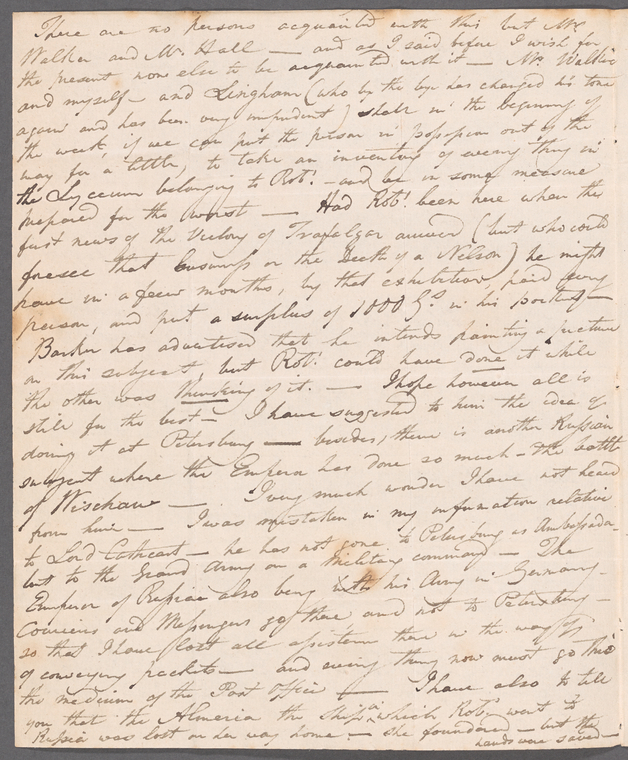 There are no persons acquainted with this but Mr.
Walker and Mr. Hall — and as I said before I wish for
the present none else to be acquainted with it — Mr. Walker
and myself — and Lingham (who by the bye has changed his tone
again and has been very impudent) shall in the beginning of
the week, if we can put the person in possession out of the
way for a little, to take an inventory of every thing in
the Lyceum belonging to Robt. — and be in some measure
prepared for the worst — Had Robt. been here when the
first news of the Victory of Trafalgar arrived (but who could
foresee that business or the Death of a Nelson) he might
have in a few months, by that exhibition, paid every
person, and put a surplus of 1000 Gs. in his pocket —
Barker has advertised that he intends painting a picture
on this subject, but Robt. could have done it while
the other was thinking of it. — I hope however all is
still for the best — I have suggested to him the idea of
doing it at Petersburg — besides, there is another Russian
subject where the Emperor has done so much — the battle
of Wischaw — I very much wonder I have not heard
from him — I was mistaken in my information relative
to Lord Cathcart — he has not gone to Petersburg as Ambassador
but to the Grand Army on a Military command — The
Emperor of Russia also being with his Army in Germany —
Couriers and Messengers go there, and not to Petersburg —
so that I have lost all assistance there in the way of
of conveying packets — and every thing now must go thro
the medium of the Post Office — I have also to tell
you that the Almeria the ship in which Robt. went to
Russia was lost on her way home — she foundered — but the
hands were saved —